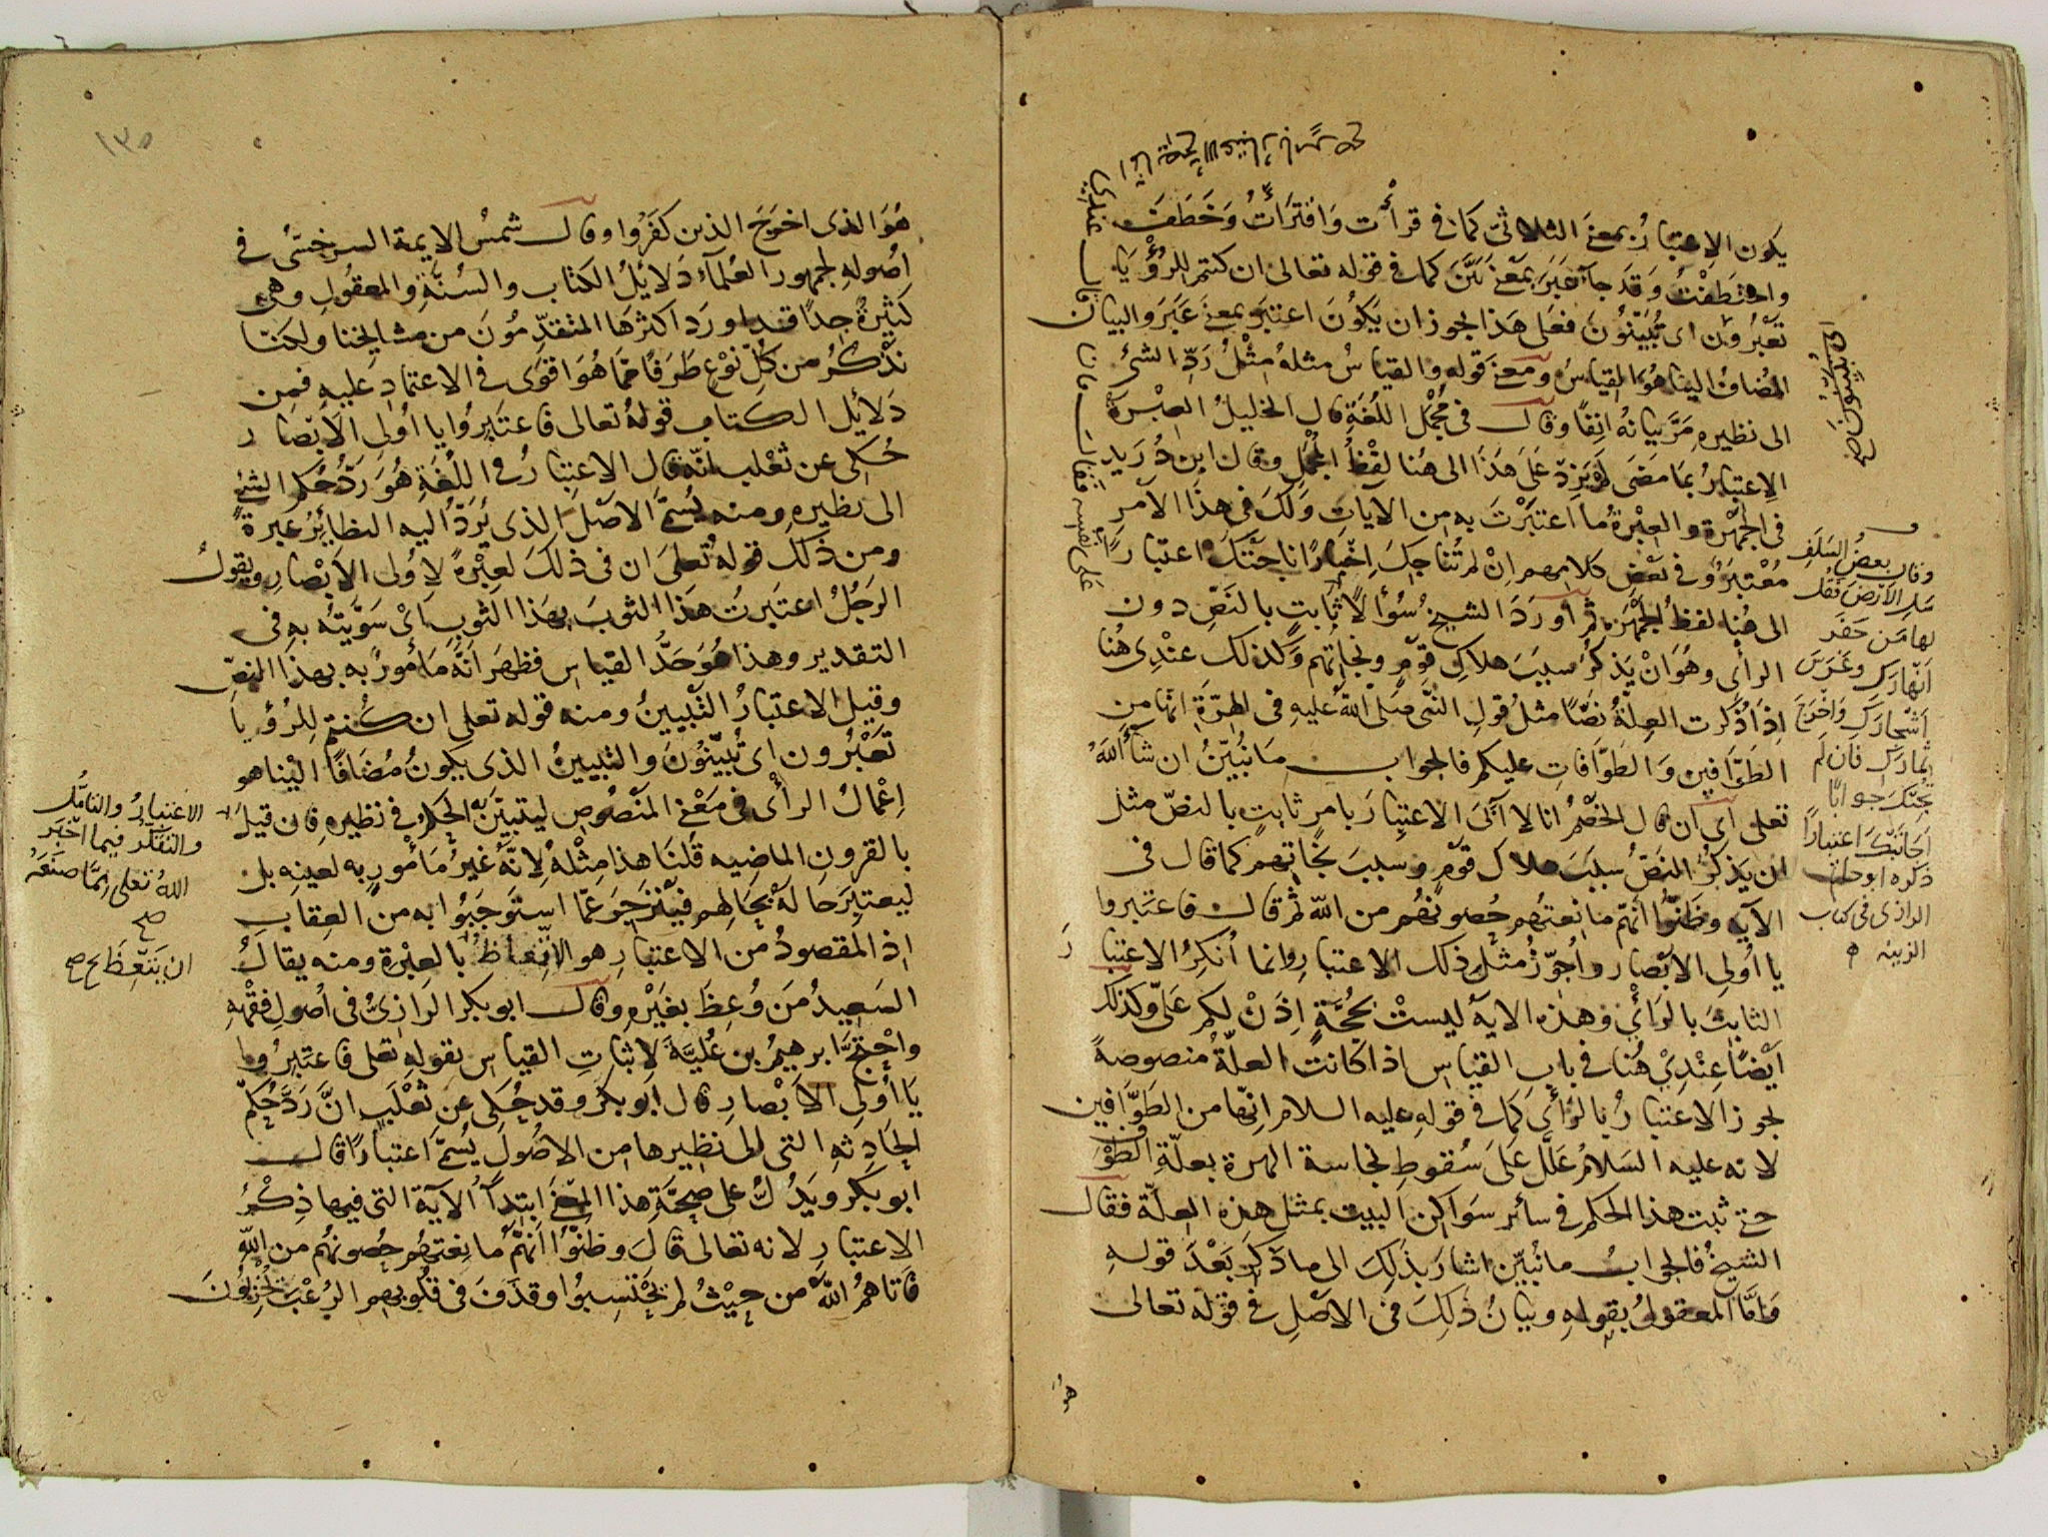 يكون الاعتبار بمعنى الثلاثى كما فى قرأت واقترأت وخطفت
واختطفت وقد جاء عبر بمعنى بيّن كما فى قوله تعالى ان كنتم للرؤيا
تعبرون اى تبينون فعلى هذا يجوز ان يكون اعتبر بمعنى عبر والبيان
المضاف الينا هو القياس ومعنى قوله والقياس مثله مثل ردّ الشئ
الى نظيره مرّ بيانه انفا وقال فى مجمل اللغة قال الخليل العبرة
الاعتبار بما مضى لم يزد على هذا الى هنا لفظ المجمل وقال ابن دريد
فى الجمهرة والعبرة ما اعتبرت به من الآيات ولك فى هذا الامر
معتبر وفى بعض كلامهم ان لم تناجك اخبارا ناجتك اعتبارا
الى هنا لفظ الجمهرة ثم اورد الشيخ سؤالا ثابت بالنص دون
الرأى وهو ان يذكر سبب هلاك قوم ونجاتهم وكذلك عندى هنا
اذا ذكرت العلة نصّا مثل قول النبى صلى الله عليه فى الهرة انها من
الطوّافين والطوّافات عليكم فالجواب ما نبيّن ان شاء الله
تعلى اى ان قال الخصم انا لا آبى الاعتبار بامر ثابت بالنصّ مثل
ان يذكر النصّ سبب هلاك قوم وسبب نجاتهم كما قال فى
الآية وظنّوا انهم مانعتهم حصونهم من الله ثم قال فاعتبروا
يا اولى الابصار واجوّز مثل ذلك الاعتبار وانما انكر الاعتبار
الثابت بالرأى وهذه الاية ليست بحجة اذن لكم علىّ وكذلك
ايضا عندى هنا فى باب القياس اذا كانت العلّة منصوصة
يجوز الاعتبار بالرأى كما فى قوله عليه السلام انها من الطوّافين
لانه عليه السلام علّل على سقوط نجاسة الهرة بعلّة الطوف
حتى ثبت هذا الحكم فى سائر سواكن البيت بمثل هذه العلّة فقال
الشيخ فالجواب ما نبيّن اشار بذلك الى ما ذكر بعد قوله
وامّا المعقول بقوله وبيان ذلك فى الاصل فى قوله تعالى
هو
اى تبينون صح
وقال بعض السلف
سل الارض فقل
لها من حفر
انهارك وغرس
اشجارك واخرج
ثمارك فان لم
يجبك جوابا
اجابتك اعتبارا
ذكره ابو حاتم
الرازى فى كتاب
الزينة
١٣٥
هو الذى اخرج الذين كفروا وقال شمس الايمة السرخسىّ فى
اصوله لجمهور العلماء دلايل الكتاب والسنّة والمعقول وهى
كثيرة جدا قد اورد اكثرها المتقدّمون من مشايخنا ولكنّا
نذكر من كلّ نوع طرفا ممّا هو اقوى فى الاعتماد عليه فمن
دلائل الكتاب قوله تعالى فاعتبروا يا اولى الابصار
حكى عن ثعلب انّه قال الاعتبار فى اللغة هو ردّ حكم الشئ
الى نظيره ومنه يسمّى الاصل الذى يردّ اليه النظائر عبرة
ومن ذلك قوله تعلى ان فى ذلك لعبرة لاولى الابصار ويقول
الرجل اعتبرت هذا الثوب بهذا الثوب اى سوّيته به فى
التقدير وهذا هو حدّ القياس فظهر انّه مأمور به بهذا النصّ
وقيل الاعتبار التّبيين ومنه قوله تعلى ان كنتم للرؤيا
تعبرون اى تبيّنون والتبيين الذى يكون مضافا الينا هو
اعمال الرأى فى معنى المنصوص ليتبيّن به الحكم فى نظيره فان قيل
بالقرون الماضيه قلنا هذا مثله لانّه غير مأمور به لعينه بل
ليعتبر حاله بحالهم فينزجر عمّا استوجبوا به من العقاب
اذ المقصود من الاعتبار هو الاتّعاظ بالعبرة ومنه يقال
السعيد من وعظ بغيره وقال ابو بكر الرازىّ فى اصول فقهه
واحتجّ ابرهيم بن عليّة لاثبات القياس بقوله تعلى فاعتبروا
يا اولى الابصار قال ابو بكر وقد حكى عن ثعلب انّ ردّ حكم
الحادثه التى الى نظيرها من الاصول يسمّى اعتبارا قال
ابو بكر ويدلّ على صحّة هذا المعنى ابتداء الآية التى فيها ذكر
الاعتبار لانه تعالى قال وظنّوا انهم مانعتهم حصونهم من الله
فاتاهم الله من حيث لم يحتسبوا وقذف فى قلوبهم الرعب يخربون
الاعتبار والتامل
والتفكر فيما اخبر
الله تعلى ممّا صنعه
صح
ان يتّعظ صح